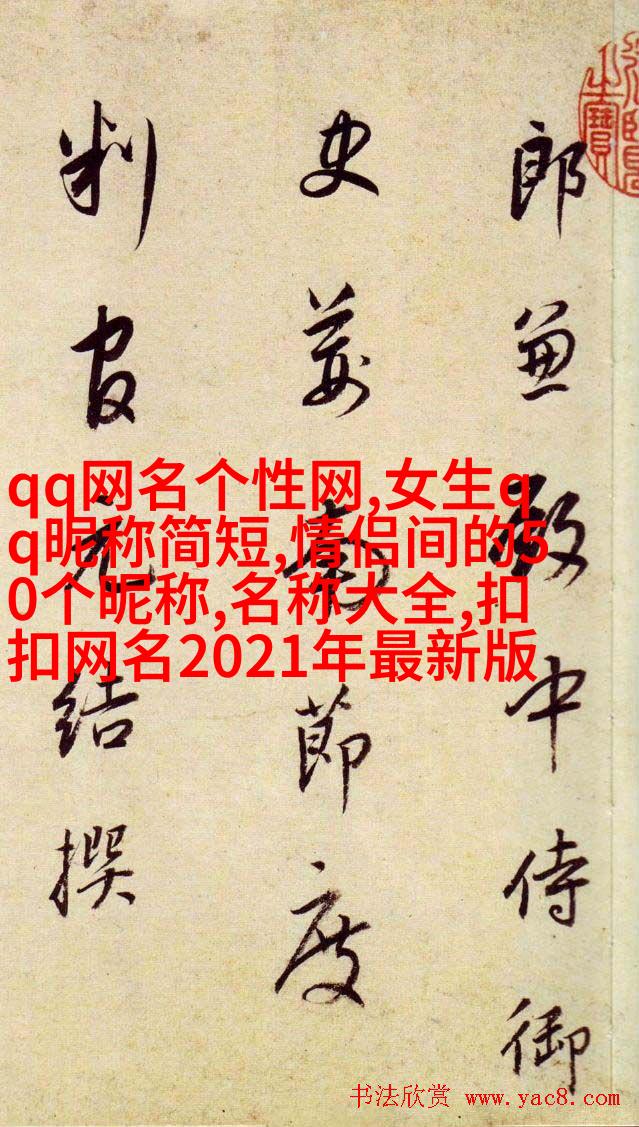 郎兼殿中侍御
史荆南節度
判官元結撰
qq网名个性网,女生q
q昵称简短,情侣间的5
0个昵称,名称大全,扣
扣网名2021年最新版
书法欣赏 www.yac8.com